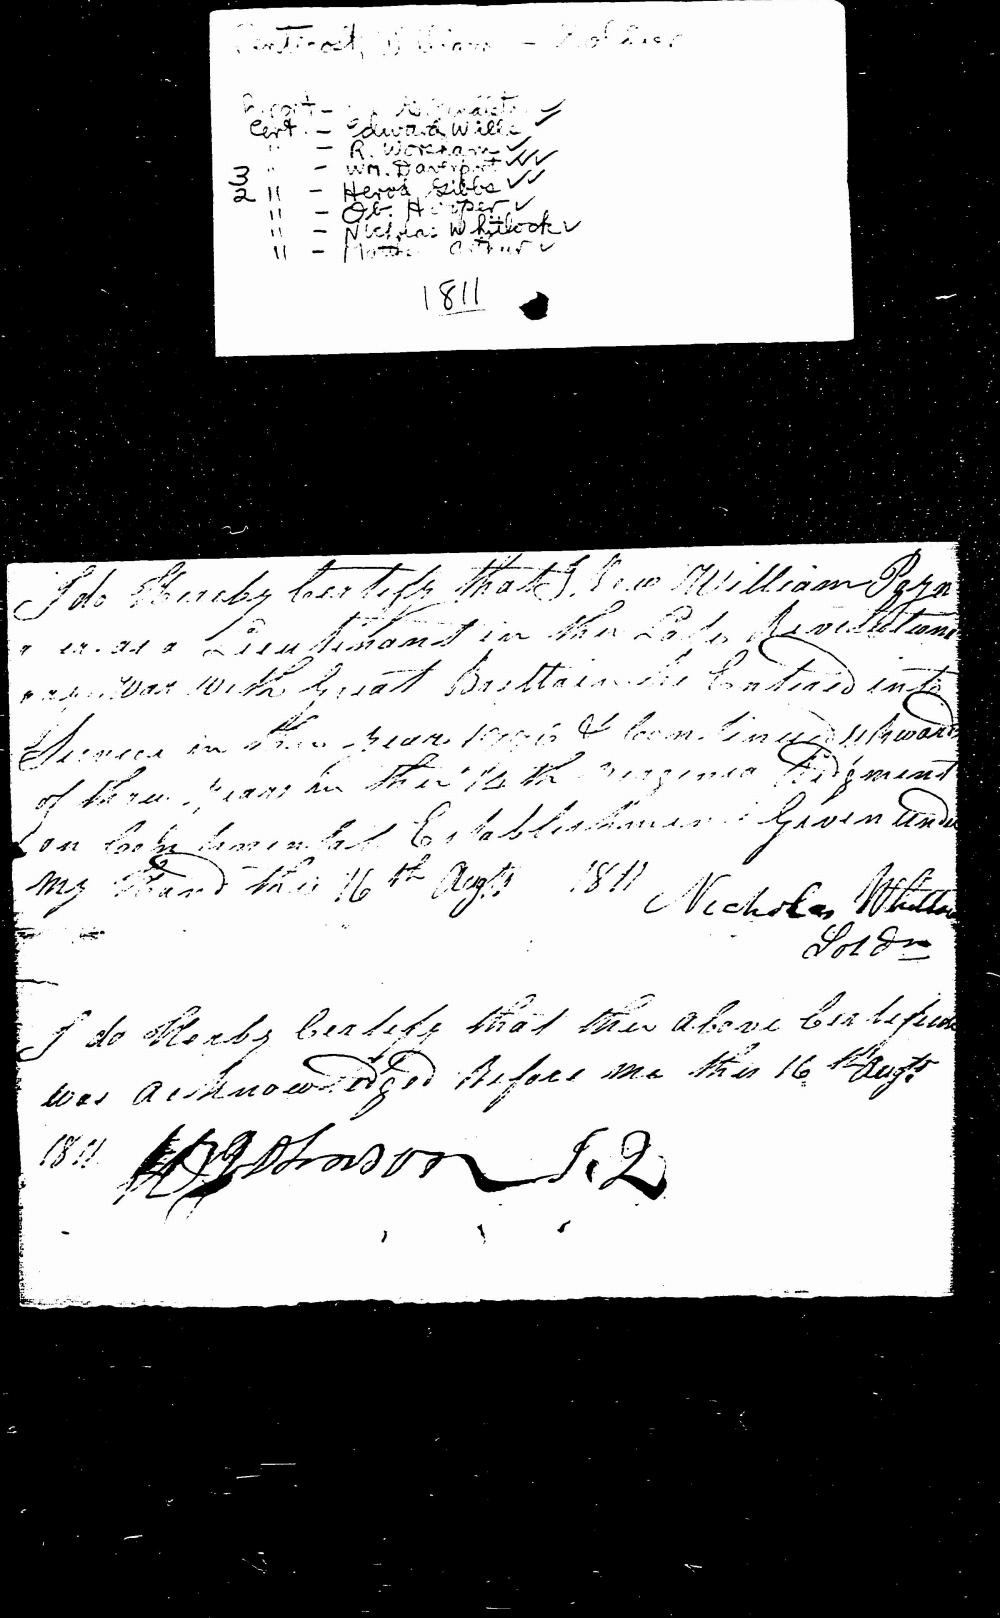 Pentecost, William - Soldier
Report -
Cert. - Edward Wills ✓
" - R. Workham ✓
3 " - Wm. Davenport ✓✓✓
2 " - Herod Gibbs ✓✓
" - Ob. Hooper ✓
" - Nicholas Whitlock ✓
" - Matthew Arthur ✓
1811
I do Hereby Certify that I New William Pern
as a Lieutenant in the Late Revolution
war with Great Brittain he Entered into
Service in the year & Continued upwards
of three years in the 14th Virginia Regment
on Continental Establishment Given under
my Hand this 16th Augt 1811
Nicholas Whitlow
Soldr
I do Hereby Certify that the above Certificate
was acknowledged Before me this 16th Augt
1811 Johnson J. Q